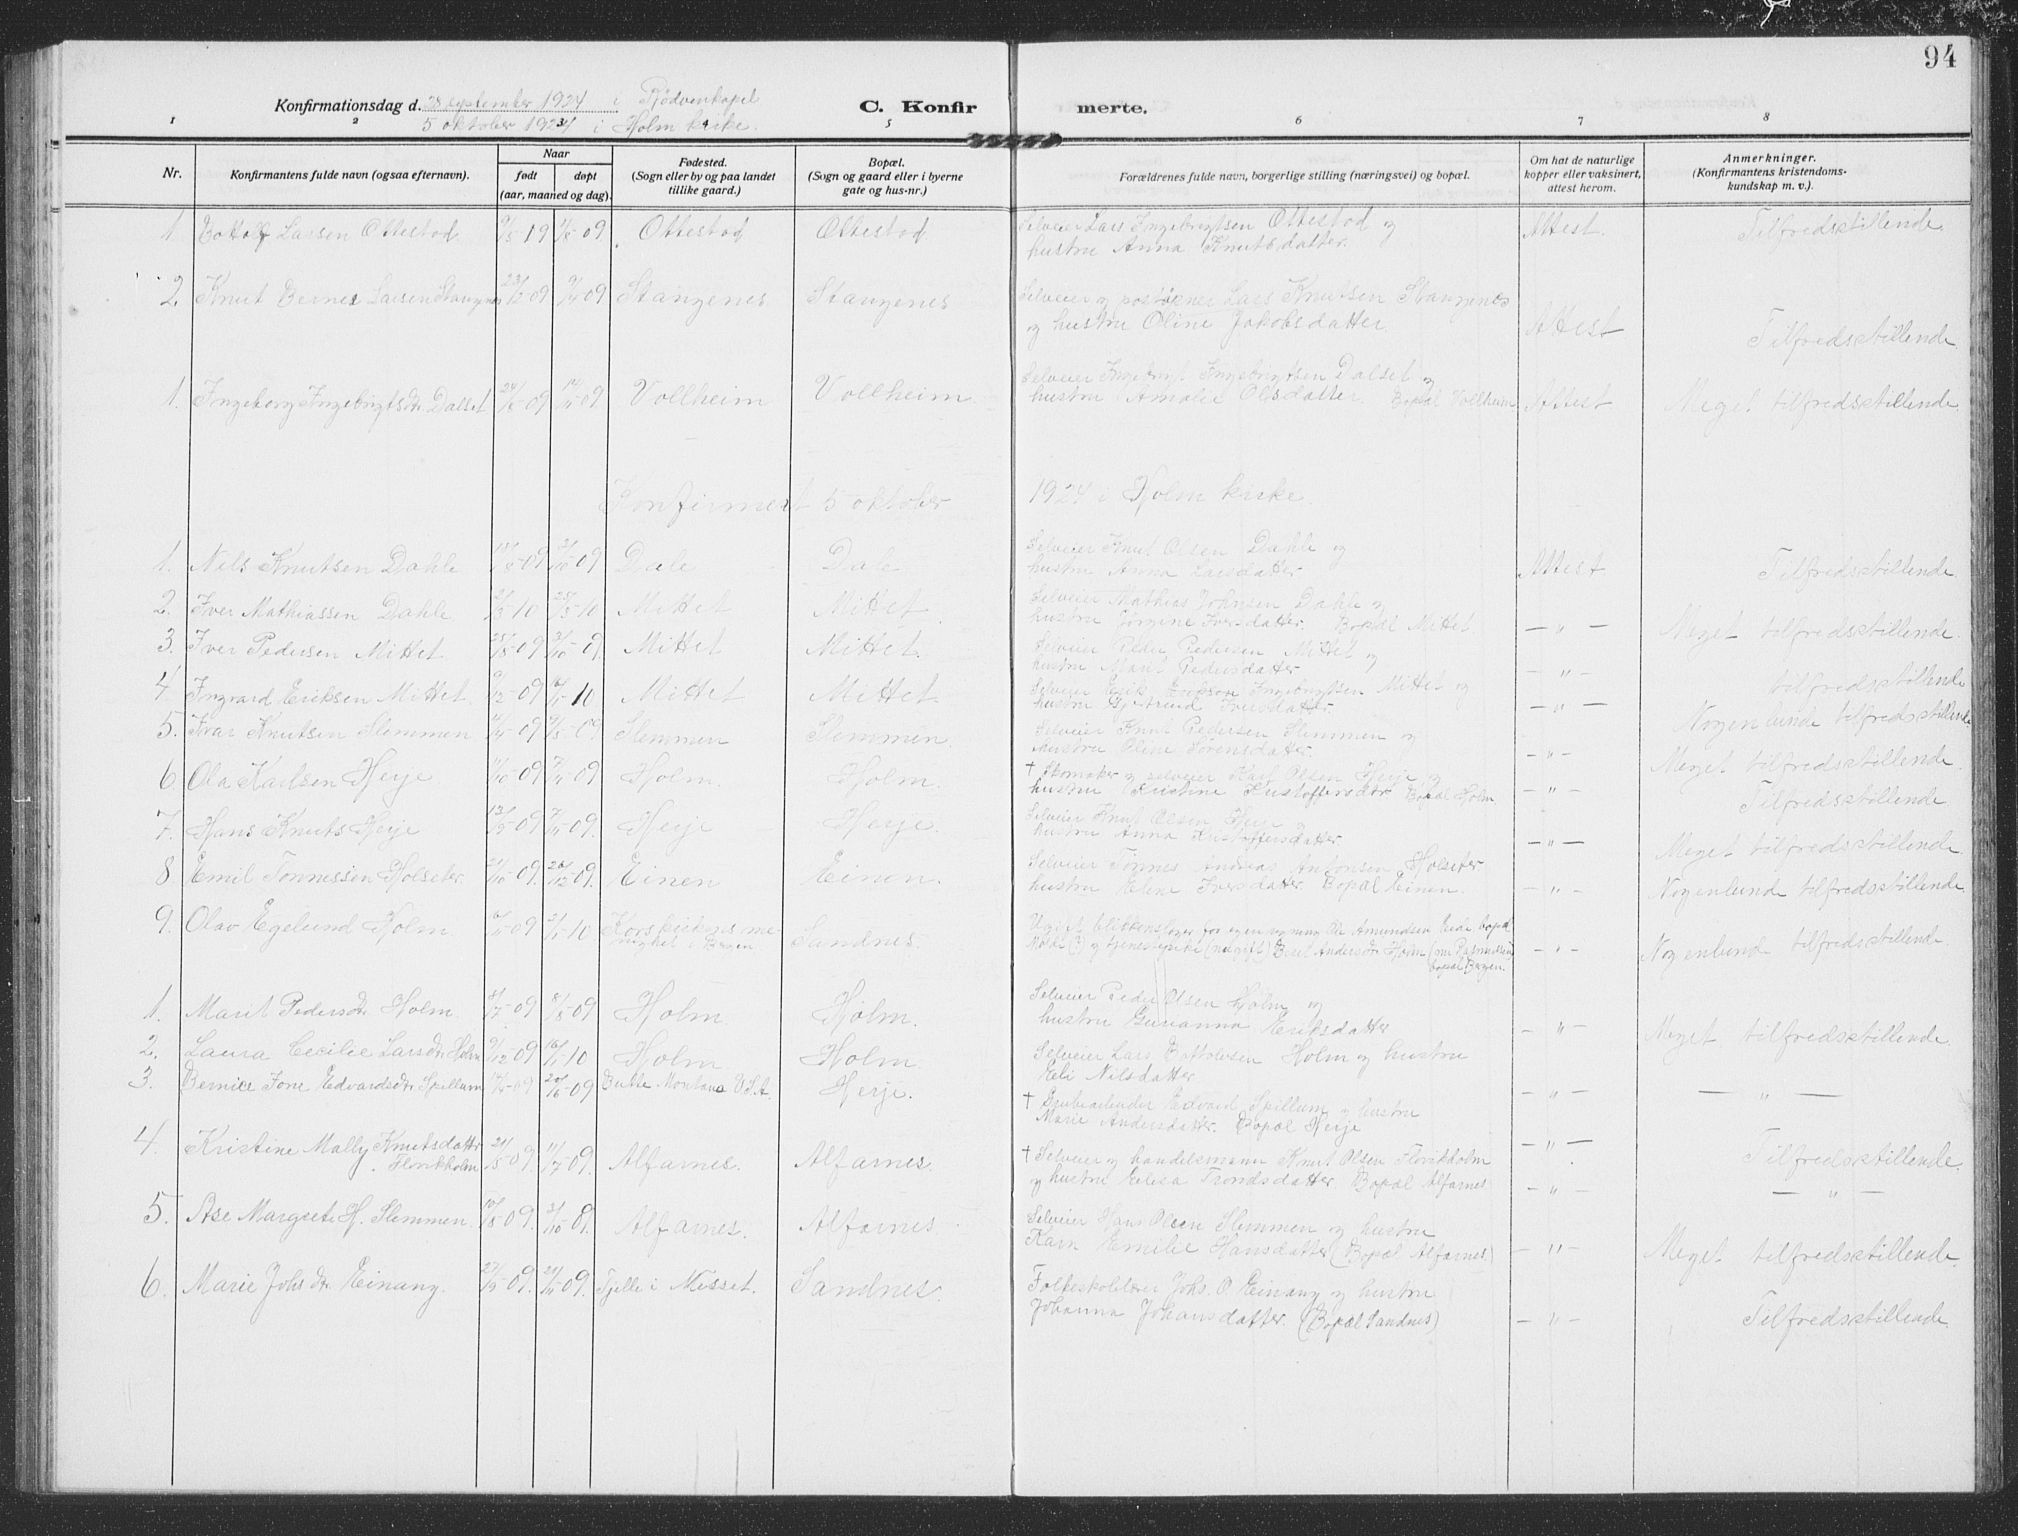 94
Konfirmationsdag d. 28 september 1924 i Rödvenkapel
5 oktober 1924 i Holm kirke.
C. Konfirmerte.
1 2 3 4 5 6 7 8
Nr. Konfirmantens fulde navn (ogsaa efternavn). Naar født døpt (aar, maaned og dag). Fødested. (Sogn eller by og paa landet tillike gaard.) Bopæl. (Sogn og gaard eller i byerne gate og hus-nr.) Forældrenes fulde navn, borgerlige stilling (næringsvei) og bopæl. Om hat de naturlige kopper eller vaksinert, attest herom. Anmerkninger. (Konfirmantens kristendomskundskap m. v.).
1. Bottolf Larsen Ottestad Ottestad Ottestad Selveier Lars Ingebrigtsen Ottestad og Attest. Tilfredsstillende
hustru Anna Knutsdatter.
2. Knut Bernes Larsen Stangenes Stangenes Stangenes Selveier og poståpner Lars Knutsen Stangenes
og hustru Oline Jakobsdatter. Attest Tilfredsstillende.
1. Ingeborg Ingebrigtsdr. Dalset Vollheim Vollheim. Selveier Ingebrigt Ingebrigtsen Dalset og
hustru Amalie Olsdatter. Bopæl Vollheim Attest Meget tilfredsstillende
Konfirmert 5 oktober 1924 i Holm kirke.
1. Nils Knutsen Dahle Dale Dale Selveier Knut Olsen Dahle og
hustru Anna Larsdatter Attest Tilfredsstillende.
2. Iver Mathiassen Dahle Mittet Mittet. Selveier Mathias Johnsen Dahle og
hustru Jørgine Iversdatter. Bopæl Mittet. — " — Meget tilfredsstillende.
3. Iver Pedersen Mittet Mittet Mittet. Selveier Peder Pedersen Mittet og
hustru Marit Pedersdatter — " — tilfredsstillende
4. Ingvard Eriksen Mittet. Mittet Mittet. Selveier Erik Ingebrigtsen Mittet og
hustru Gjertrud Iversdatter. — " — Nogenlunde tilfredsstillende
5. Ivar Knutsen Slemmen Slemmen Slemmen. Selveier Knut Pedersen Slemmen og
hustru Oline Sörensdatter. - " - Meget tilfredsstillende.
6. Ola Karlsen Herje Holm. Holm. † Skomaker og selveier Karl Olsen Herje og
hustru Kristine Kristoffersdtr Bopæl Holm — " — Tilfredsstillende
7. Hans Knuts Herje Herje Herje. Selveier Knut Olsen Herje og
hustru Anna Kristoffersdatter. — " — Meget tilfredsstillende
8. Emil Tønnessen Holseter. Einen Einen. Selveier Tönnes Andreas Antonsen Holseter
hustru Eline Iversdatter Bopæl Einen. — " — Nogenlunde tilfredsstillende.
9. Olav Egelund Holm. Korskirkens menighet i Bergen Sandnes. Ugift blikkenslager for egen regning Amundsen Eide bopæl
Molde (?) og tjenestepike (nu gift) Berit Andersdr. Holm (nu Rasmussen) - " - Nogenlund tilfredsstillende
bopæl Bergen.
1. Marit Pedersdr. Holm. Holm Holm. Selveier Peder Olsen Holm og
hustru Gurianna Eriksdatter — " — Meget tilfredsstillende.
2. Laura Cecilie Larsdr. Holm Holm Holm. Selveier Lars Bottolvsen Holm og hustru
Eli Nilsdatter — " — — " —
3. Bernice Jone Edvardsdr. Spillum Butte Montana U.S.A. Herje. † Grubearbeider Edvard Spillum og hustru
Marie Andersdatter. Bopæl Herje — " —
4. Kristine Mally Knutsdatter Flovikholm Alfarnes. Alfarnes. † Selveier og handelsmann Knut Olsen Flovikholm Tilfredsstillende.
og hustru Elisa Trondsdatter. Bopæl Alfarnes — " — — " —
5. Åse Margrete H. Slemmen. Alfarnes. Alfarnes Selveier Hans Olsen Slemmen og hustru
Karn Emilie Hansdatter (Bopæl Alfarnes) — " — Meget tilfredsstillende.
6. Marie Johs dr. Einang. Tjelle i Nesset. Sandnes. Folkeskolelærer Johs. O. Einang og hustru
Johanna Johansdatter. (Bopæl Sandnes) — " — Tilfredsstillende.